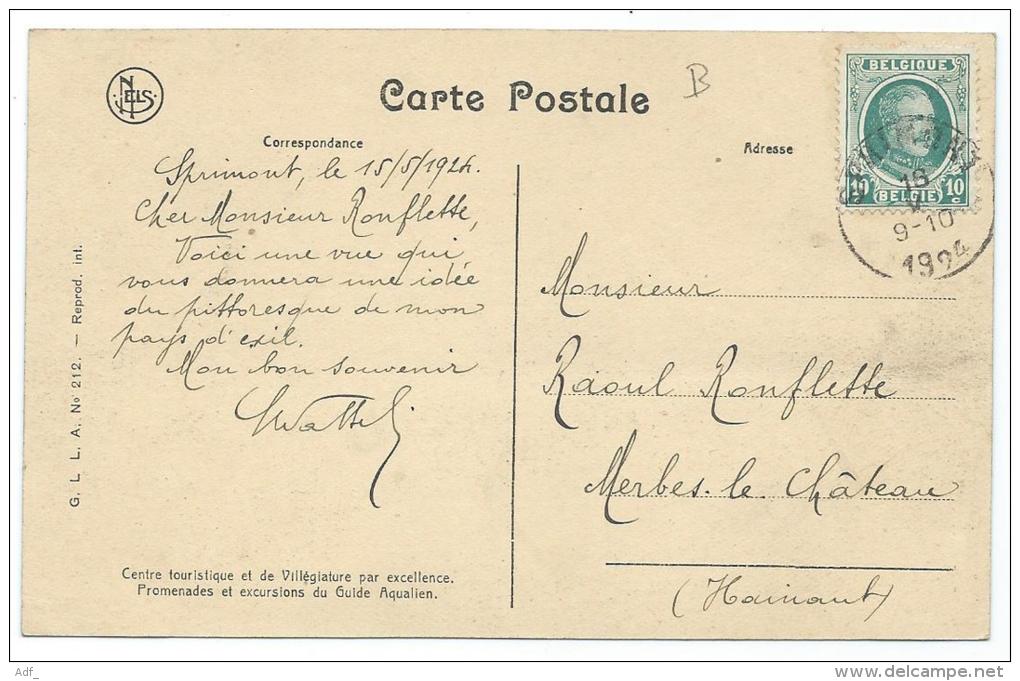 NELS
Carte Postale
B
Correspondance
Adresse
Sprimont, le 15/5/1924.
Cher Monsieur Ronflette,
Voici une vue qui
vous donnera une idée
du pittoresque de mon
pays d'exil.
Mon bon souvenir
G. L. L. A. Nº 212. — Reprod. int.
Centre touristique et de Villégiature par excellence.
Promenades et excursions du Guide Aqualien.
BELGIQUE
10 c
10 c
BELGIË
18
V
9-10
1924
Monsieur
Raoul Ronflette
Merbes-le-Château
(Hainaut)
Adf_
www.delcampe.net